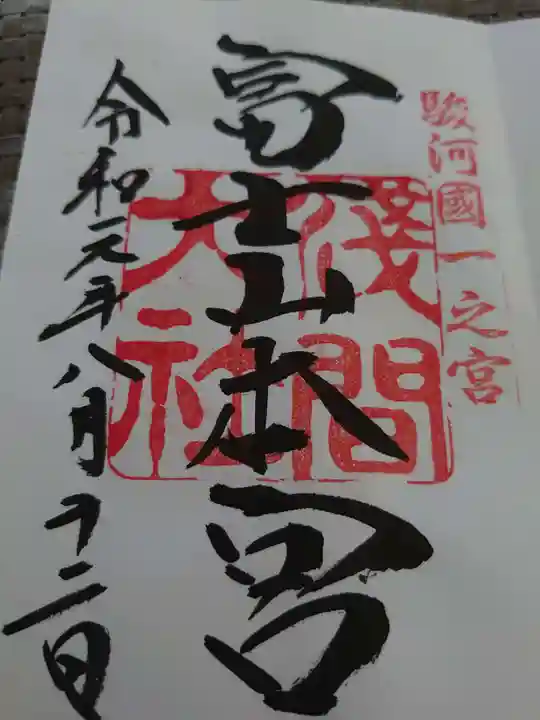 駿河國一之宮
富士山本宮
淺間
大社
令和元年八月十二日